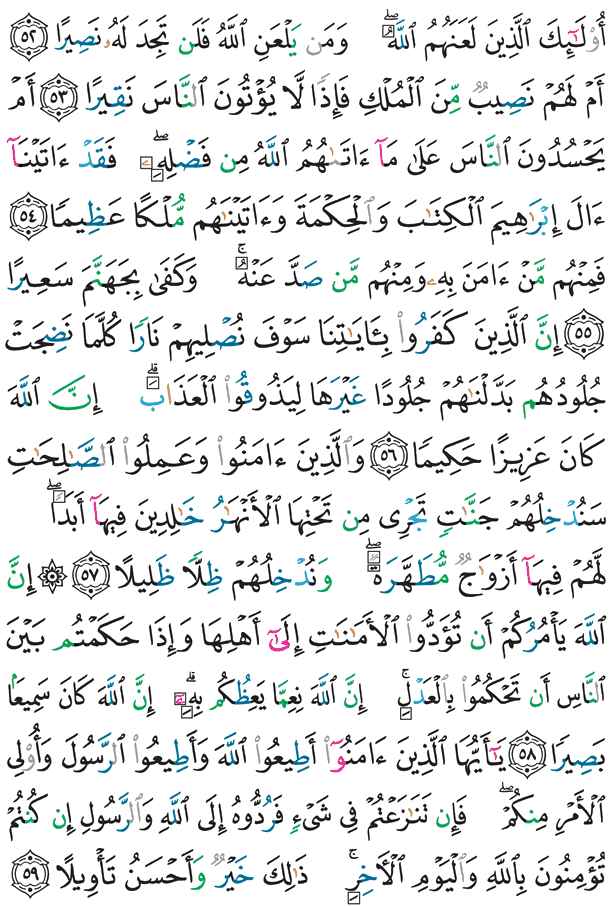 أُوْلَٰٓئِكَ ٱلَّذِينَ لَعَنَهُمُ ٱللَّهُۖ وَمَن يَلْعَنِ ٱللَّهُ فَلَن تَجِدَ لَهُۥ نَصِيرًا ٥٢
أَمْ لَهُمْ نَصِيبٌ مِّنَ ٱلْمُلْكِ فَإِذًا لَّا يُؤْتُونَ ٱلنَّاسَ نَقِيرًا ٥٣ أَمْ
يَحْسُدُونَ ٱلنَّاسَ عَلَىٰ مَآ ءَاتَىٰهُمُ ٱللَّهُ مِن فَضْلِهِۦۖ فَقَدْ ءَاتَيْنَآ
ءَالَ إِبْرَٰهِيمَ ٱلْكِتَٰبَ وَٱلْحِكْمَةَ وَءَاتَيْنَٰهُم مُّلْكًا عَظِيمًا ٥٤
فَمِنْهُم مَّنْ ءَامَنَ بِهِۦ وَمِنْهُم مَّن صَدَّ عَنْهُۚ وَكَفَىٰ بِجَهَنَّمَ سَعِيرًا
٥٥ إِنَّ ٱلَّذِينَ كَفَرُوا۟ بِـَٔايَٰتِنَا سَوْفَ نُصْلِيهِمْ نَارًا كُلَّمَا نَضِجَتْ
جُلُودُهُم بَدَّلْنَٰهُمْ جُلُودًا غَيْرَهَا لِيَذُوقُوا۟ ٱلْعَذَابَۗ إِنَّ ٱللَّهَ
كَانَ عَزِيزًا حَكِيمًا ٥٦ وَٱلَّذِينَ ءَامَنُوا۟ وَعَمِلُوا۟ ٱلصَّٰلِحَٰتِ
سَنُدْخِلُهُمْ جَنَّٰتٍ تَجْرِى مِن تَحْتِهَا ٱلْأَنْهَٰرُ خَٰلِدِينَ فِيهَآ أَبَدًاۖ
لَّهُمْ فِيهَآ أَزْوَٰجٌ مُّطَهَّرَةٌۖ وَنُدْخِلُهُمْ ظِلًّا ظَلِيلًا ٥٧ ۞ إِنَّ
ٱللَّهَ يَأْمُرُكُمْ أَن تُؤَدُّوا۟ ٱلْأَمَٰنَٰتِ إِلَىٰٓ أَهْلِهَا وَإِذَا حَكَمْتُم بَيْنَ
ٱلنَّاسِ أَن تَحْكُمُوا۟ بِٱلْعَدْلِۚ إِنَّ ٱللَّهَ نِعِمَّا يَعِظُكُم بِهِۦٓۗ إِنَّ ٱللَّهَ كَانَ سَمِيعًۢا
بَصِيرًا ٥٨ يَٰٓأَيُّهَا ٱلَّذِينَ ءَامَنُوٓا۟ أَطِيعُوا۟ ٱللَّهَ وَأَطِيعُوا۟ ٱلرَّسُولَ وَأُو۟لِى
ٱلْأَمْرِ مِنكُمْۖ فَإِن تَنَٰزَعْتُمْ فِى شَىْءٍ فَرُدُّوهُ إِلَى ٱللَّهِ وَٱلرَّسُولِ إِن كُنتُمْ
تُؤْمِنُونَ بِٱللَّهِ وَٱلْيَوْمِ ٱلْءَاخِرِۚ ذَٰلِكَ خَيْرٌ وَأَحْسَنُ تَأْوِيلًا ٥٩